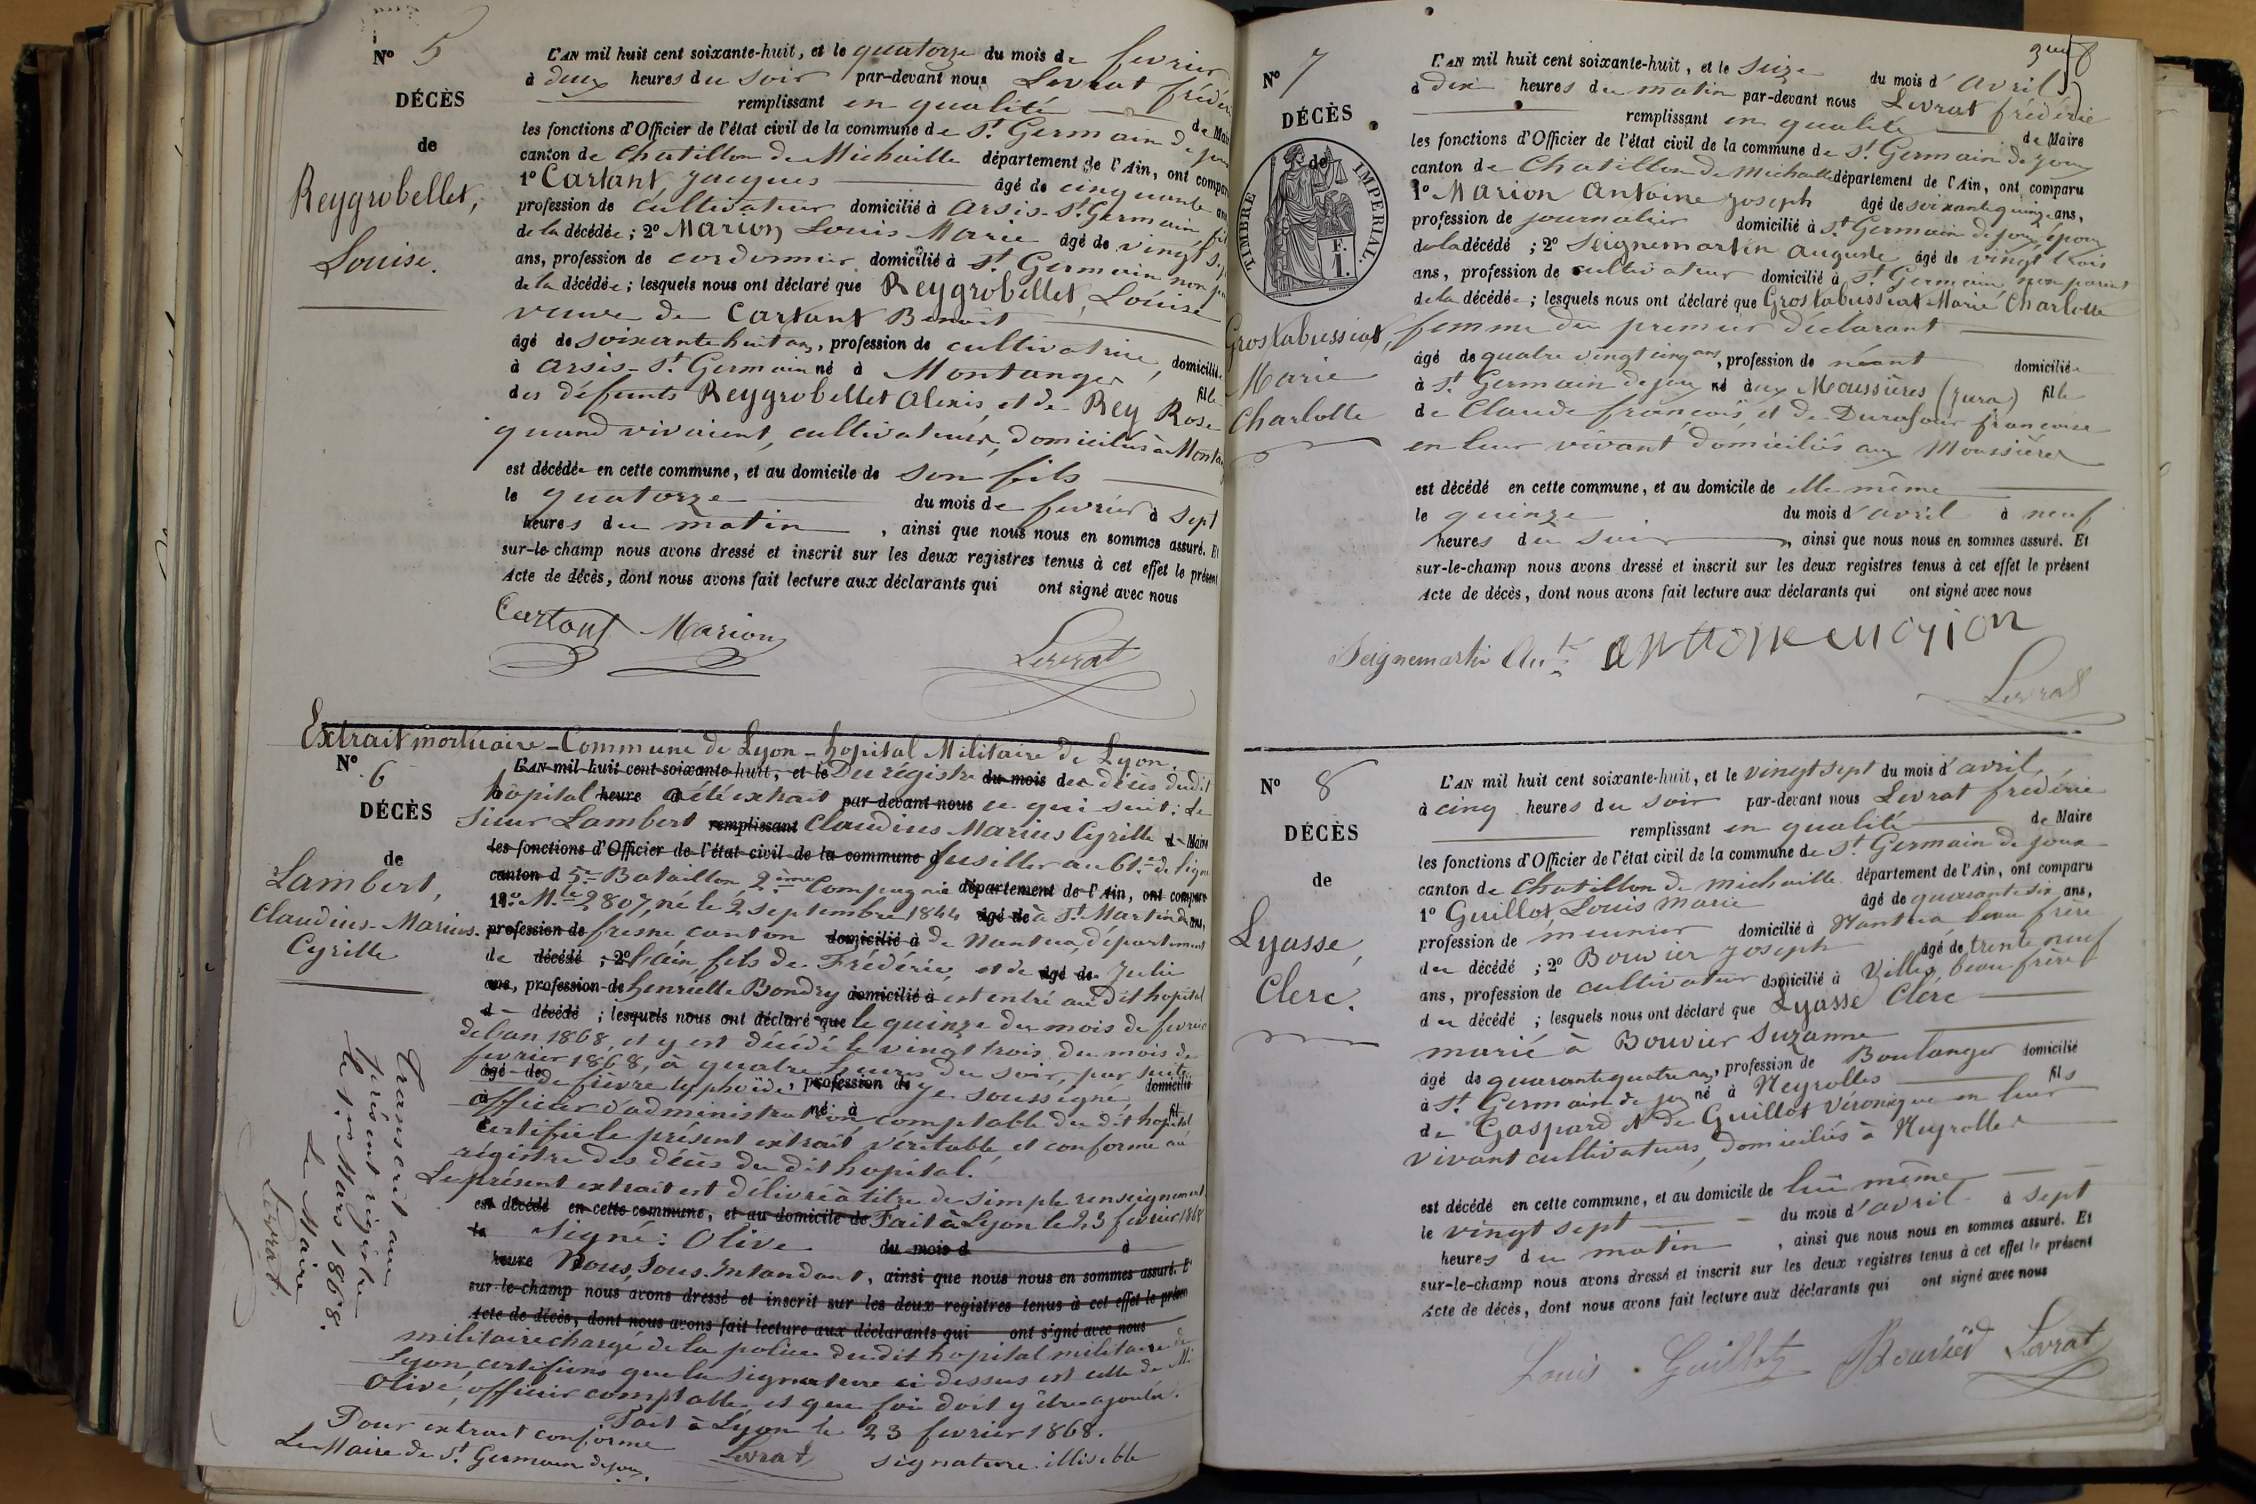 N° 5
DÉCÈS
de
Reygrobellet,
Louise.
L'AN mil huit cent soixante-huit, et le quatorze du mois de fevrier
à deux heures du soir par-devant nous Levrat frédér
remplissant en qualité de Mair
les fonctions d'Officier de l'état civil de la commune de St. Germain de joux
canton de Chatillon de Michaille département de l'Ain, ont compar
1° Cartant, Jacques âgé de cinquante ans
profession de cultivateur domicilié à Arsis-St. Germain, fils
de la décédée; 2° Marion Louis Marie âgé de vingt sept
ans, profession de cordonnier domicilié à St. Germain non pa
de la décédée; lesquels nous ont déclaré que Reygrobellet, Louise
veuve de Cartant Benoit
âgé de soixante huit ans, profession de cultivatrice, domiciliée
à Arsis-St. Germain né à Montanges, fille
des défunts Reygrobellet Alexis, et de Rey Rose
quand vivaient, cultivateurs, domiciliés à Montan
est décédée en cette commune, et au domicile de son fils
le quatorze du mois de fevrier à sept
heures du matin, ainsi que nous nous en sommes assuré. Et
sur-le-champ nous avons dressé et inscrit sur les deux registres tenus à cet effet le présent
Acte de décès, dont nous avons fait lecture aux déclarants qui ont signé avec nous
Cartant Marion
Levrat
Extrait mortuaire - Commune de Lyon - hopital Militaire de Lyon.
N° 6
DÉCÈS
de
Lambert,
Claudius-Marius.
Cyrille
L'AN mil huit cent soixante-huit, et le Du régistre du mois des décès dudit
hôpital heure a été extrait par-devant nous ce qui suit: Le
sieur Lambert remplissant Claudius Marius Cyrille de Maire
les fonctions d'Officier de l'état civil de la commune d fusiller au 61e de ligne
canton d 5e Bataillon, 2ème Compagnie département de l'Ain, ont comparu
1° No. Mle 2807, né le 2 septembre 1844 âgé de à St. Martin du ans,
profession de fresne canton domicilié à de Nantua, département
de décédé; 2° l'ain, fils de Frédéric, et de âgé de Julie
ans, profession de henriette Bondry domicilié à est entré au dit hopital
d décédé; lesquels nous ont déclaré que le quinze du mois de fevrier
de l'an 1868, et y est décédé le vingt trois du mois de
fevrier 1868, à quatre heures du soir, par suite
âgé de de fièvre typhoïde, profession de Je soussigné, domicilié
à officier d'administration né à comptable du dit hopital fil
certifie le présent extrait, véritable et conforme au
régistre des décès du dit hopital.
Le présent extrait est délivré à titre de simple renseignement
est décédé en cette commune, et au domicile de Fait à Lyon le 23 fevrier 1868
le Signé: Olive du mois d à
heure Nous, Sous-Intendant, ainsi que nous nous en sommes assuré. Et
sur-le-champ nous avons dressé et inscrit sur les deux registres tenus à cet effet le présen
Acte de décès, dont nous avons fait lecture aux déclarants qui ont signé avec nous
militaire chargé de la police du dit hopital militaire de
Lyon, certifions que la signature ci dessus est celle de Mr.
Olive, officier comptable et que foi doit y être ajoutée.
Fait à Lyon le 23 fevrier 1868.
Pour extrait conforme
Le Maire de St. Germain de joux,
Levrat signature illisible
Transcrit au
présent régistre
le 1er Mars 1868.
Le Maire
Levrat
N° 7
DÉCÈS
de
TIMBRE IMPÉRIAL.
F.
1.
Groslabussiat,
Marie
Charlotte
L'AN mil huit cent soixante-huit, et le seize du mois d'avril
à dix heures du matin par-devant nous Levrat frédéric
remplissant en qualité de Maire
les fonctions d'Officier de l'état civil de la commune de St. Germain de joux
canton de Chatillon de Michaille département de l'Ain, ont comparu
1° Marion Antoine Joseph âgé de soixante quinze ans,
profession de journalier domicilié à St. Germain de joux, époux
de la décédé; 2° Seignemartin Auguste âgé de vingt trois
ans, profession de cultivateur domicilié à St. Germain, non parent
de la décédée; lesquels nous ont déclaré que Groslabussiat Marie Charlotte
femme du premier déclarant
âgé de quatre vingt cinq ans, profession de néant domiciliée
à St. Germain de joux né à aux Moussières (Jura) fille
de Claude françois, et de Durafour françoise
en leur vivant, domiciliés aux Moussières
est décédé en cette commune, et au domicile de elle même
le quinze du mois d'avril à neuf
heures du soir, ainsi que nous nous en sommes assuré. Et
sur-le-champ nous avons dressé et inscrit sur les deux registres tenus à cet effet le présent
Acte de décès, dont nous avons fait lecture aux déclarants qui ont signé avec nous
Seignemartin Aute antoine marion
Levrat
N° 8
DÉCÈS
de
Lyasse,
Clerc.
L'AN mil huit cent soixante-huit, et le vingt sept du mois d'avril,
à cinq heures du soir par-devant nous Levrat frédéric
remplissant en qualité de Maire
les fonctions d'Officier de l'état civil de la commune de St. Germain de joux
canton de Chatillon de michaille département de l'Ain, ont comparu
1° Guillot, Louis Marie âgé de quarante six ans,
profession de meunier domicilié à Nantua beau frère
du décédé; 2° Bouvier Joseph âgé de trente neuf
ans, profession de cultivateur domicilié à Villes, beau frère
du décédé; lesquels nous ont déclaré que Lyasse Clerc
marié à Bouvier Suzanne
âgé de quarante quatre ans, profession de Boulanger domicilié
à St. Germain de joux né à Neyrolles fils
de Gaspard et de Guillot Véronique en leur
vivant cultivateurs, domiciliés à Neyrolles
est décédé en cette commune, et au domicile de lui même
le vingt sept du mois d'avril à sept
heures du matin, ainsi que nous nous en sommes assuré. Et
sur-le-champ nous avons dressé et inscrit sur les deux registres tenus à cet effet le présent
Acte de décès, dont nous avons fait lecture aux déclarants qui ont signé avec nous
Louis Guillot Bouvier Levrat